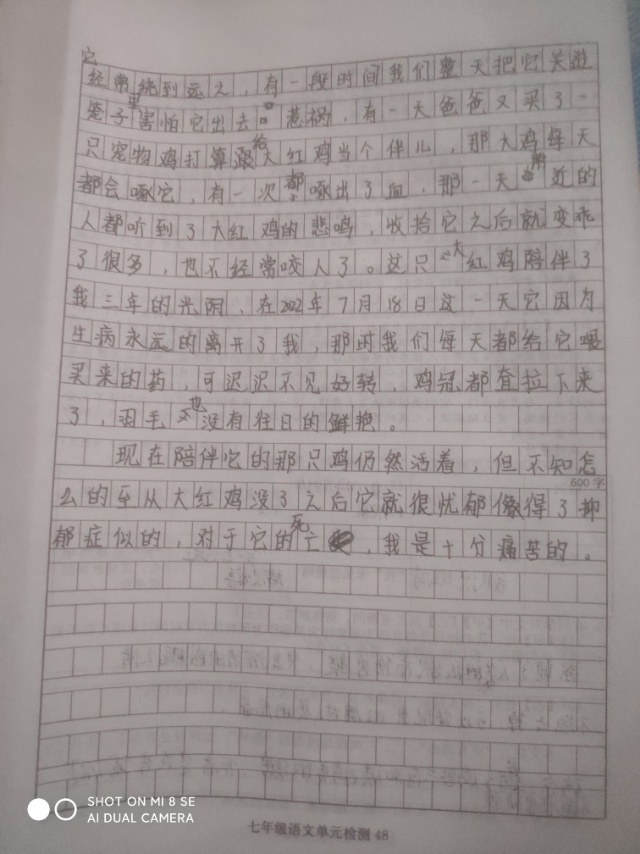 它
经常绕到远之，有一段时间我们整天把它关进
笼子里害怕它出去惹祸，有一天爸爸又买了一
只宠物鸡打算跟给大红鸡当个伴儿，那大鸡每天
都会啄它，有一次都啄出了血，那一天附近的
人都听到了大红鸡的悲鸣，收拾它之后就变乖
了很多，也不经常咬人了。这只大红鸡陪伴了
我三年的光阴，在202年7月18日这一天它因为
生病永远的离开了我，那时我们每天都给它喂
买来的药，可迟迟不见好转，鸡冠都耷拉下来
了，羽毛也没有往日的鲜艳。
现在陪伴它的那只鸡仍然活着，但不知怎
600字
么的至从大红鸡没了之后它就很忧郁像得了抑
郁症似的，对于它的死亡，我是十分痛苦的。
SHOT ON MI 8 SE
AI DUAL CAMERA
七年级语文单元检测 48